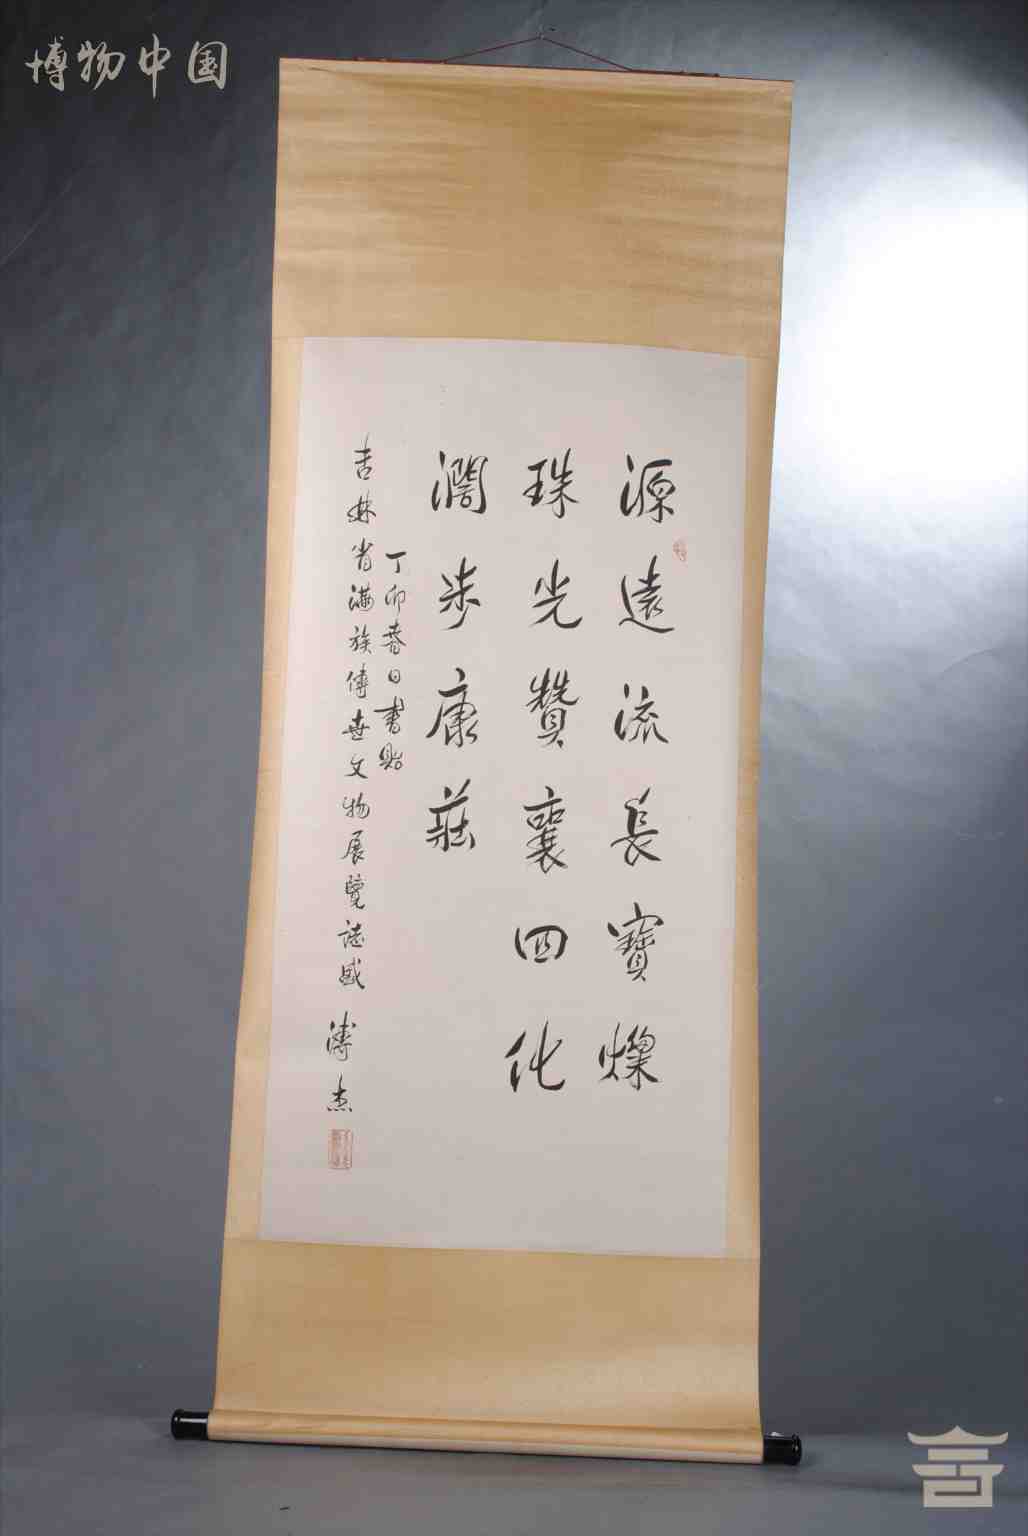 博物中国
源遠流長寶燦
珠光贊襄四化
濶步康莊
丁卯春日書貽
吉林省满族傳世文物展覽誌盛
溥杰